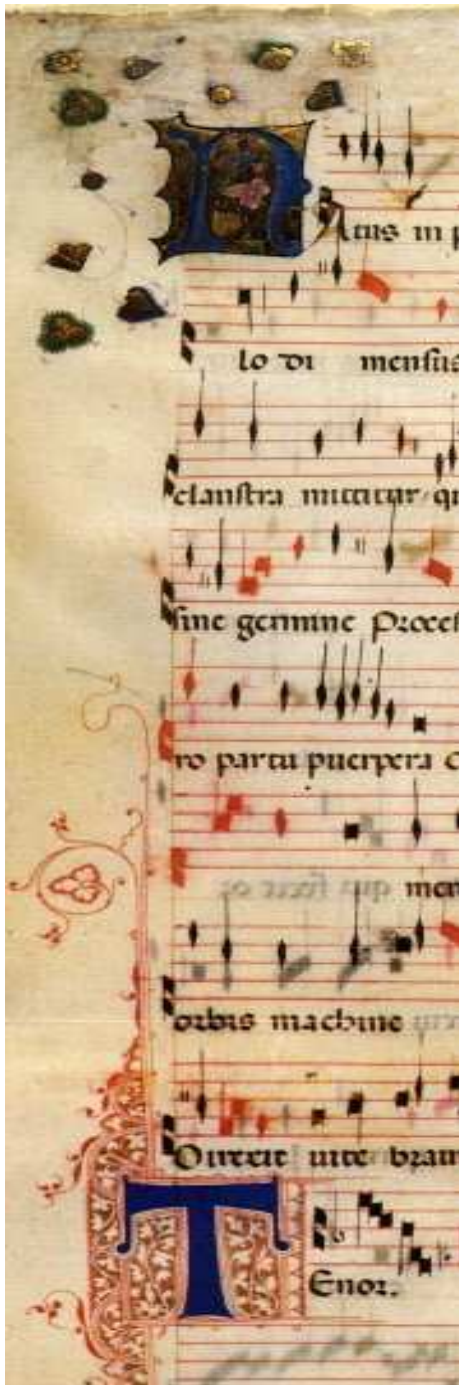 Natus in p
lo di mensus
claustra mittitur qu
sine germine Proces
ro partu puerpera
men
orbis machine
Direxit vite bram
Tenor.